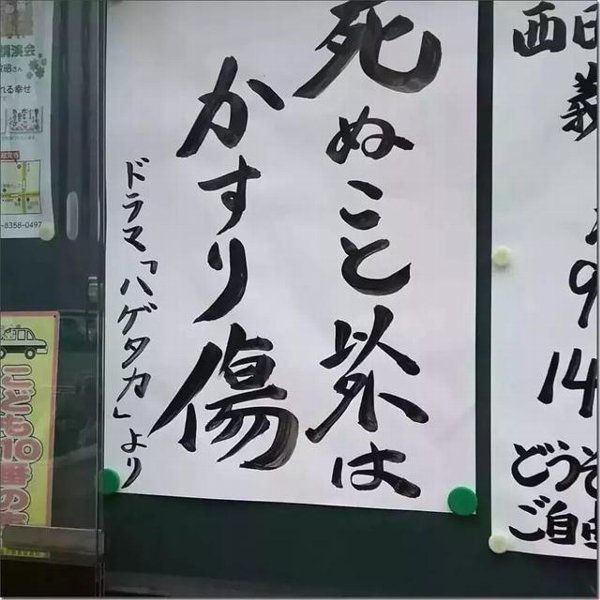 死ぬこと以外は
かすり傷
ドラマ「ハゲタカ」より
講演会
れる幸せ
8358-0497
こども110番の
西
義
9
14
どうぞ
ご自由